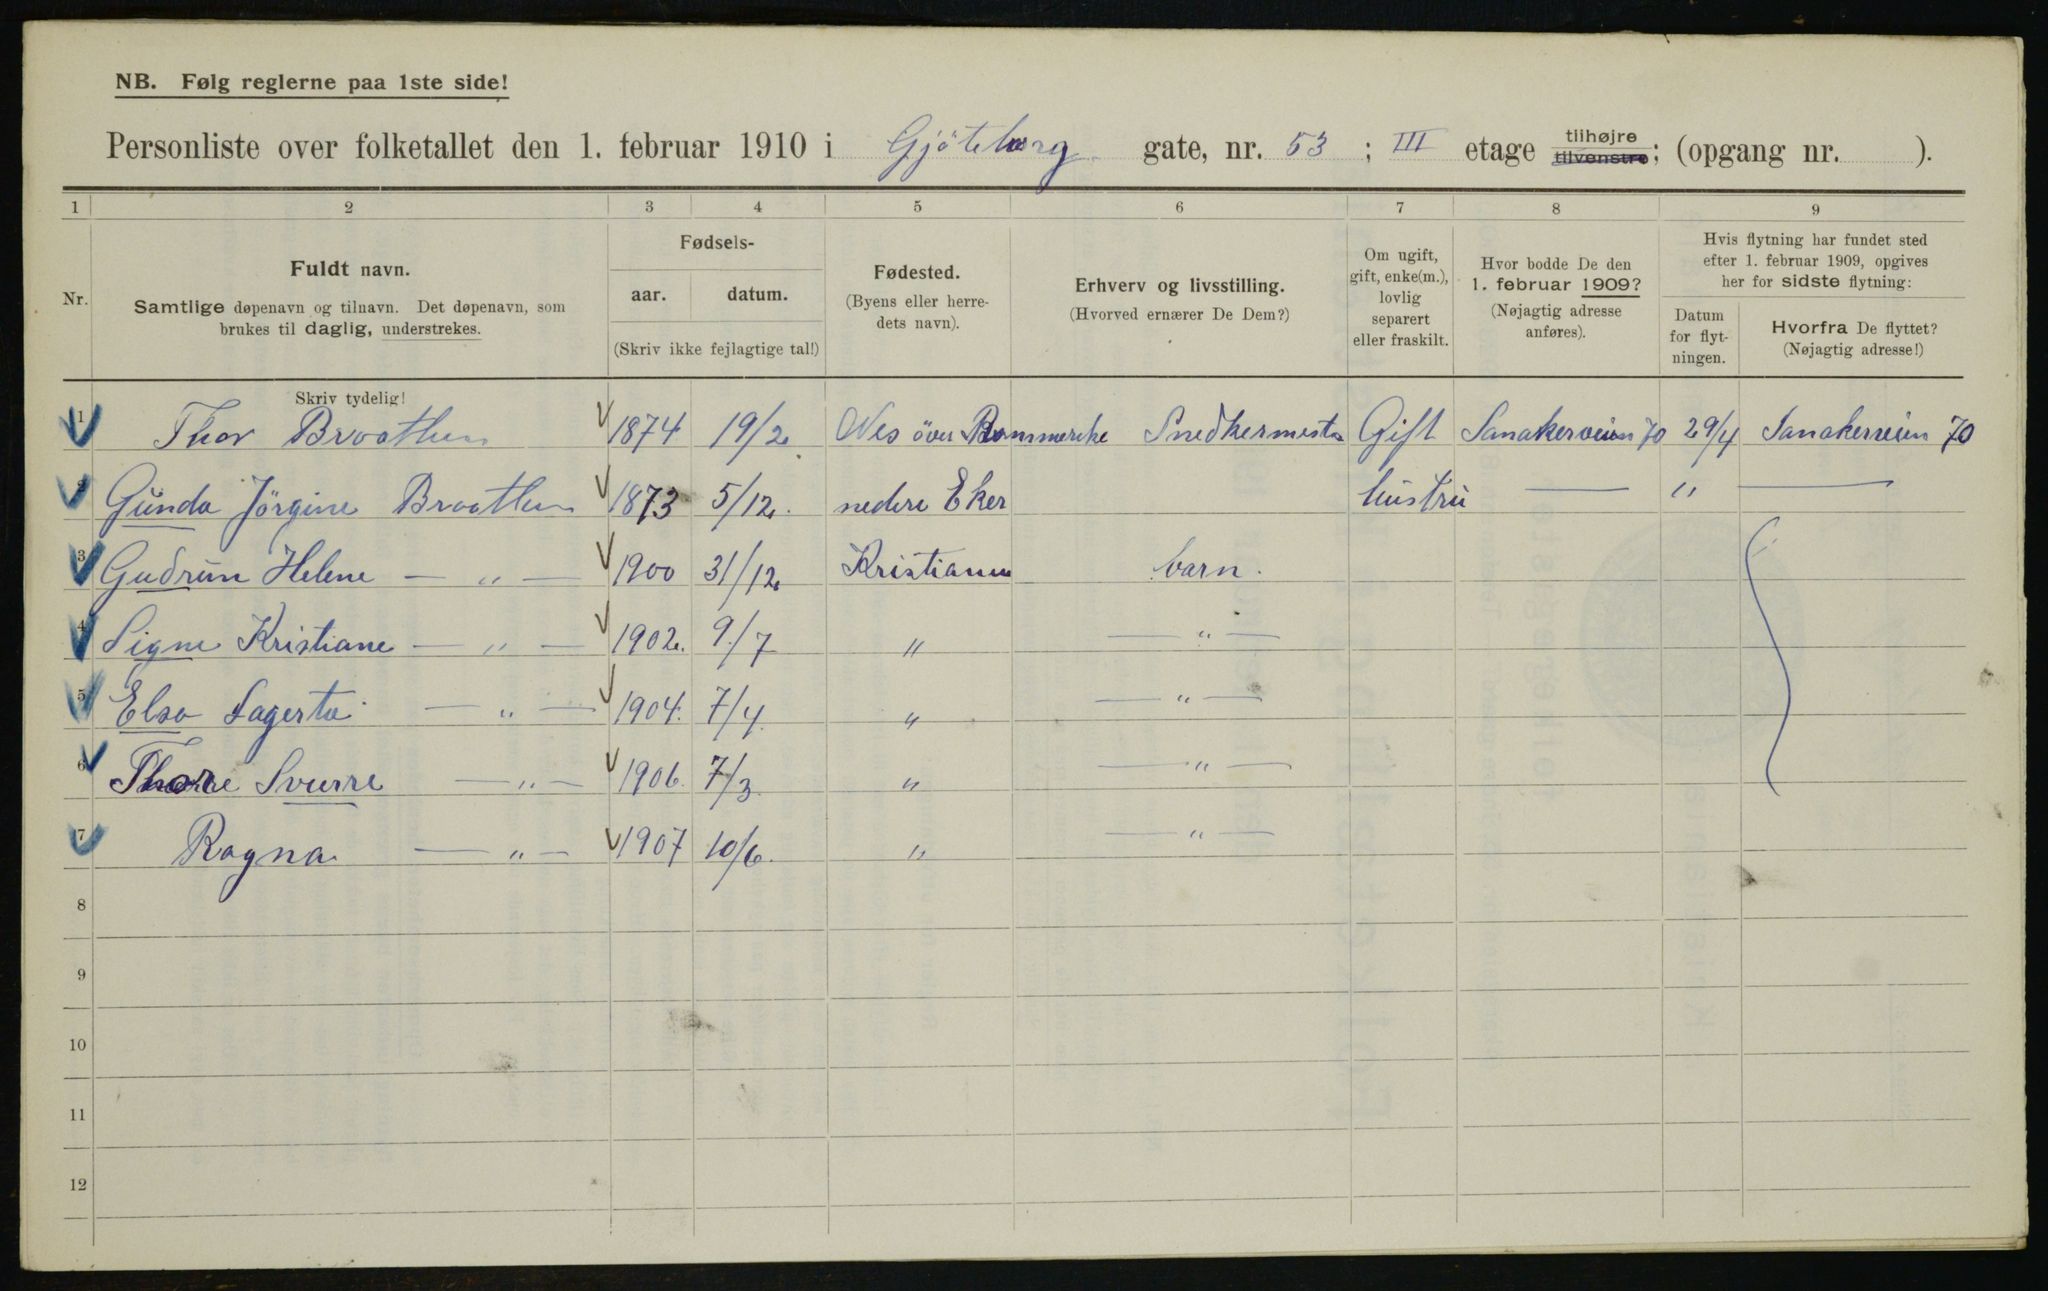 NB. Følg reglerne paa 1ste side!
Personliste over folketallet den 1. februar 1910 i Gjöteborg gate, nr. 53 ; III etage tilhøjre tilvenstre; (opgang nr. ).
1 2 3 4 5 6 7 8 9
Nr.
Fuldt navn.
Samtlige døpenavn og tilnavn. Det døpenavn, som
brukes til daglig, understrekes.
Fødsels-
aar. datum.
(Skriv ikke fejlagtige tal!)
Fødested.
(Byens eller herre-
dets navn).
Erhverv og livsstilling.
(Hvorved ernærer De Dem?)
Om ugift,
gift, enke(m.),
lovlig
separert
eller fraskilt.
Hvor bodde De den
1. februar 1909?
(Nøjagtig adresse
anføres).
Hvis flytning har fundet sted
efter 1. februar 1909, opgives
her for sidste flytning:
Datum
for flyt-
ningen.
Hvorfra De flyttet?
(Nøjagtig adresse!)
Skriv tydelig!
1 Thor Braathen 1874 19/2 Nes över Rommerike Snedkermester Gift Sanakerveien 70 29/4 Sanakerveien 70
2 Gunda Jörgine Braathen 1873 5/12. nedere Eker hustru — " —
3 Gudrun Helene — " — 1900 31/12 Kristiania barn.
4 Signe Kristiane — " — 1902. 9/7 " — " —
5 Elsa Lagerta — " — 1904. 7/4. " — " —
6 Thore Sverre — " — 1906. 7/3. " — " —
7 Ragna — " — 1907 10/6. " — " —
8
9
10
11
12